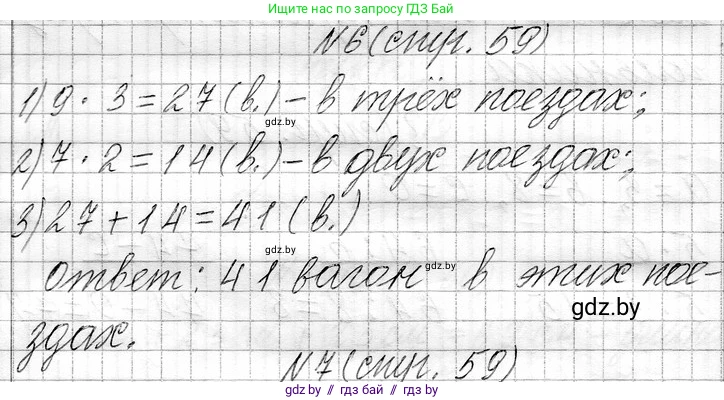 Ищите нас по запросу ГДЗ Бай
N6 (стр. 59)
1) 9 · 3 = 27 (в.) - в трёх поездах;
gdz.by
2) 7 · 2 = 14 (в.) - в двух поездах;
3) 27 + 14 = 41 (в.)
gdz.by
ответ: 41 вагон в этих пое-
gdz.by
gdz.by
здах.
N7 (стр. 59)
gdz.by // гдз бай // gdz.by